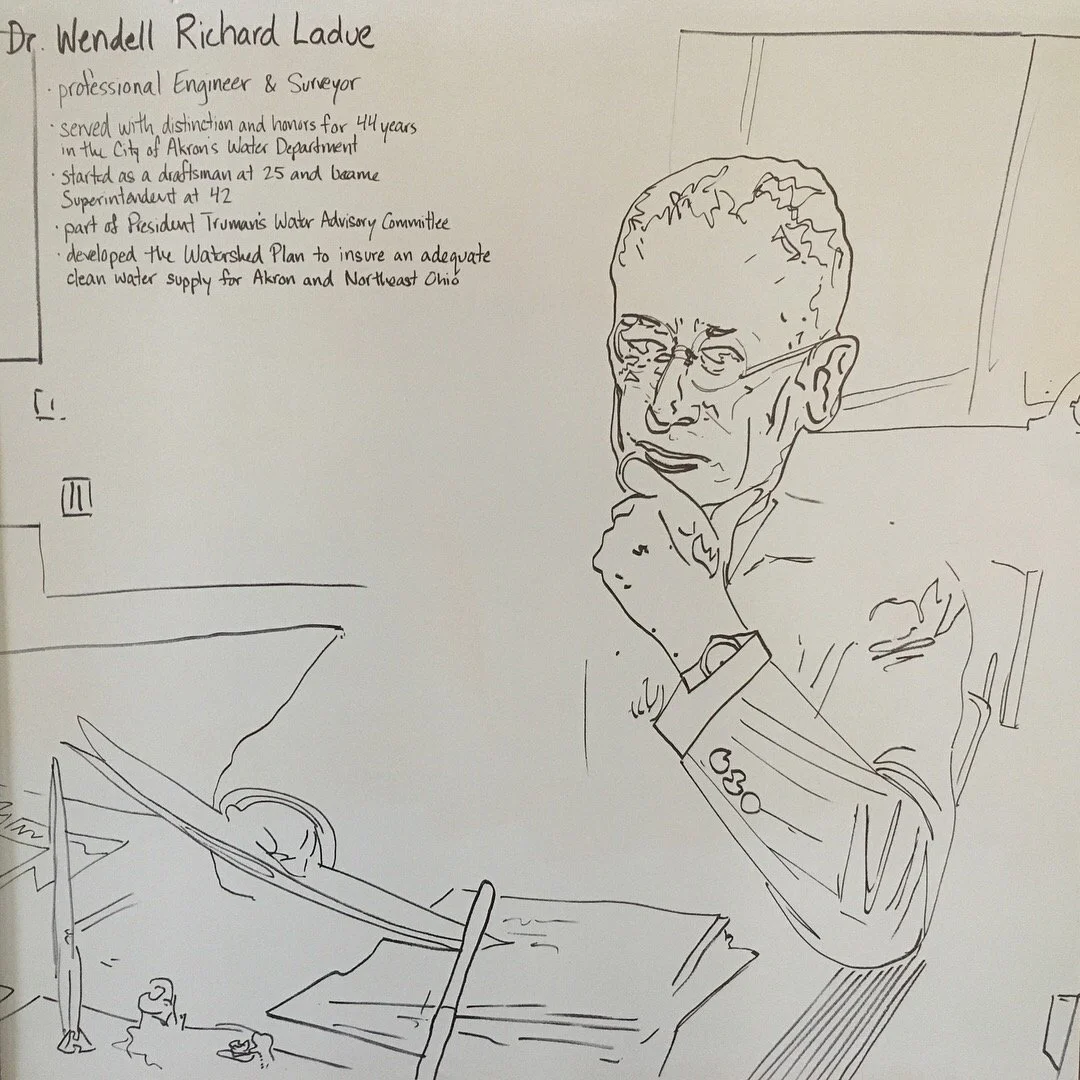 Dr. Wendell Richard Ladue
· professional Engineer & Surveyor
· served with distinction and honors for 44 years
in the City of Akron's Water Department
· started as a draftsman at 25 and became
Superintendent at 42
· part of President Truman's Water Advisory Committee
· developed the Watershed Plan to insure an adequate
clean water supply for Akron and Northeast Ohio